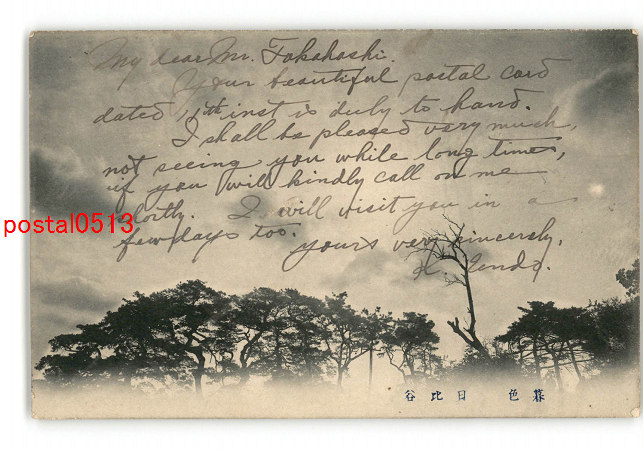 My dear Mr. Takahashi.
Your beautiful postal card
dated 11th inst is duly to hand.
I shall be pleased very much,
not seeing you while long times,
if you will kindly call on me
shortly. I will visit you in a
few days too.
yours very sincerely,
K. Endo.
postal0513
谷比日 色暮